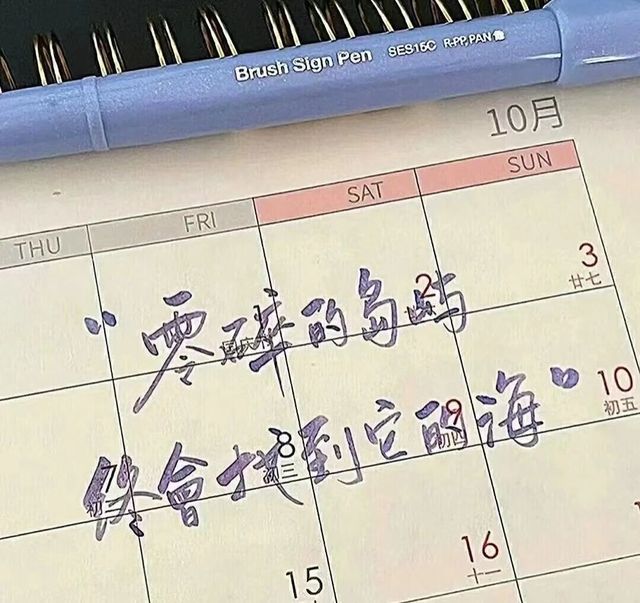 Brush Sign Pen SES15C R-PP,PAN
10月
THU FRI SAT SUN
1 2 3
国庆 廿七
“零碎的岛屿
8 9 10
初三 初四 初五
終會找到它的海”
15 16
十一